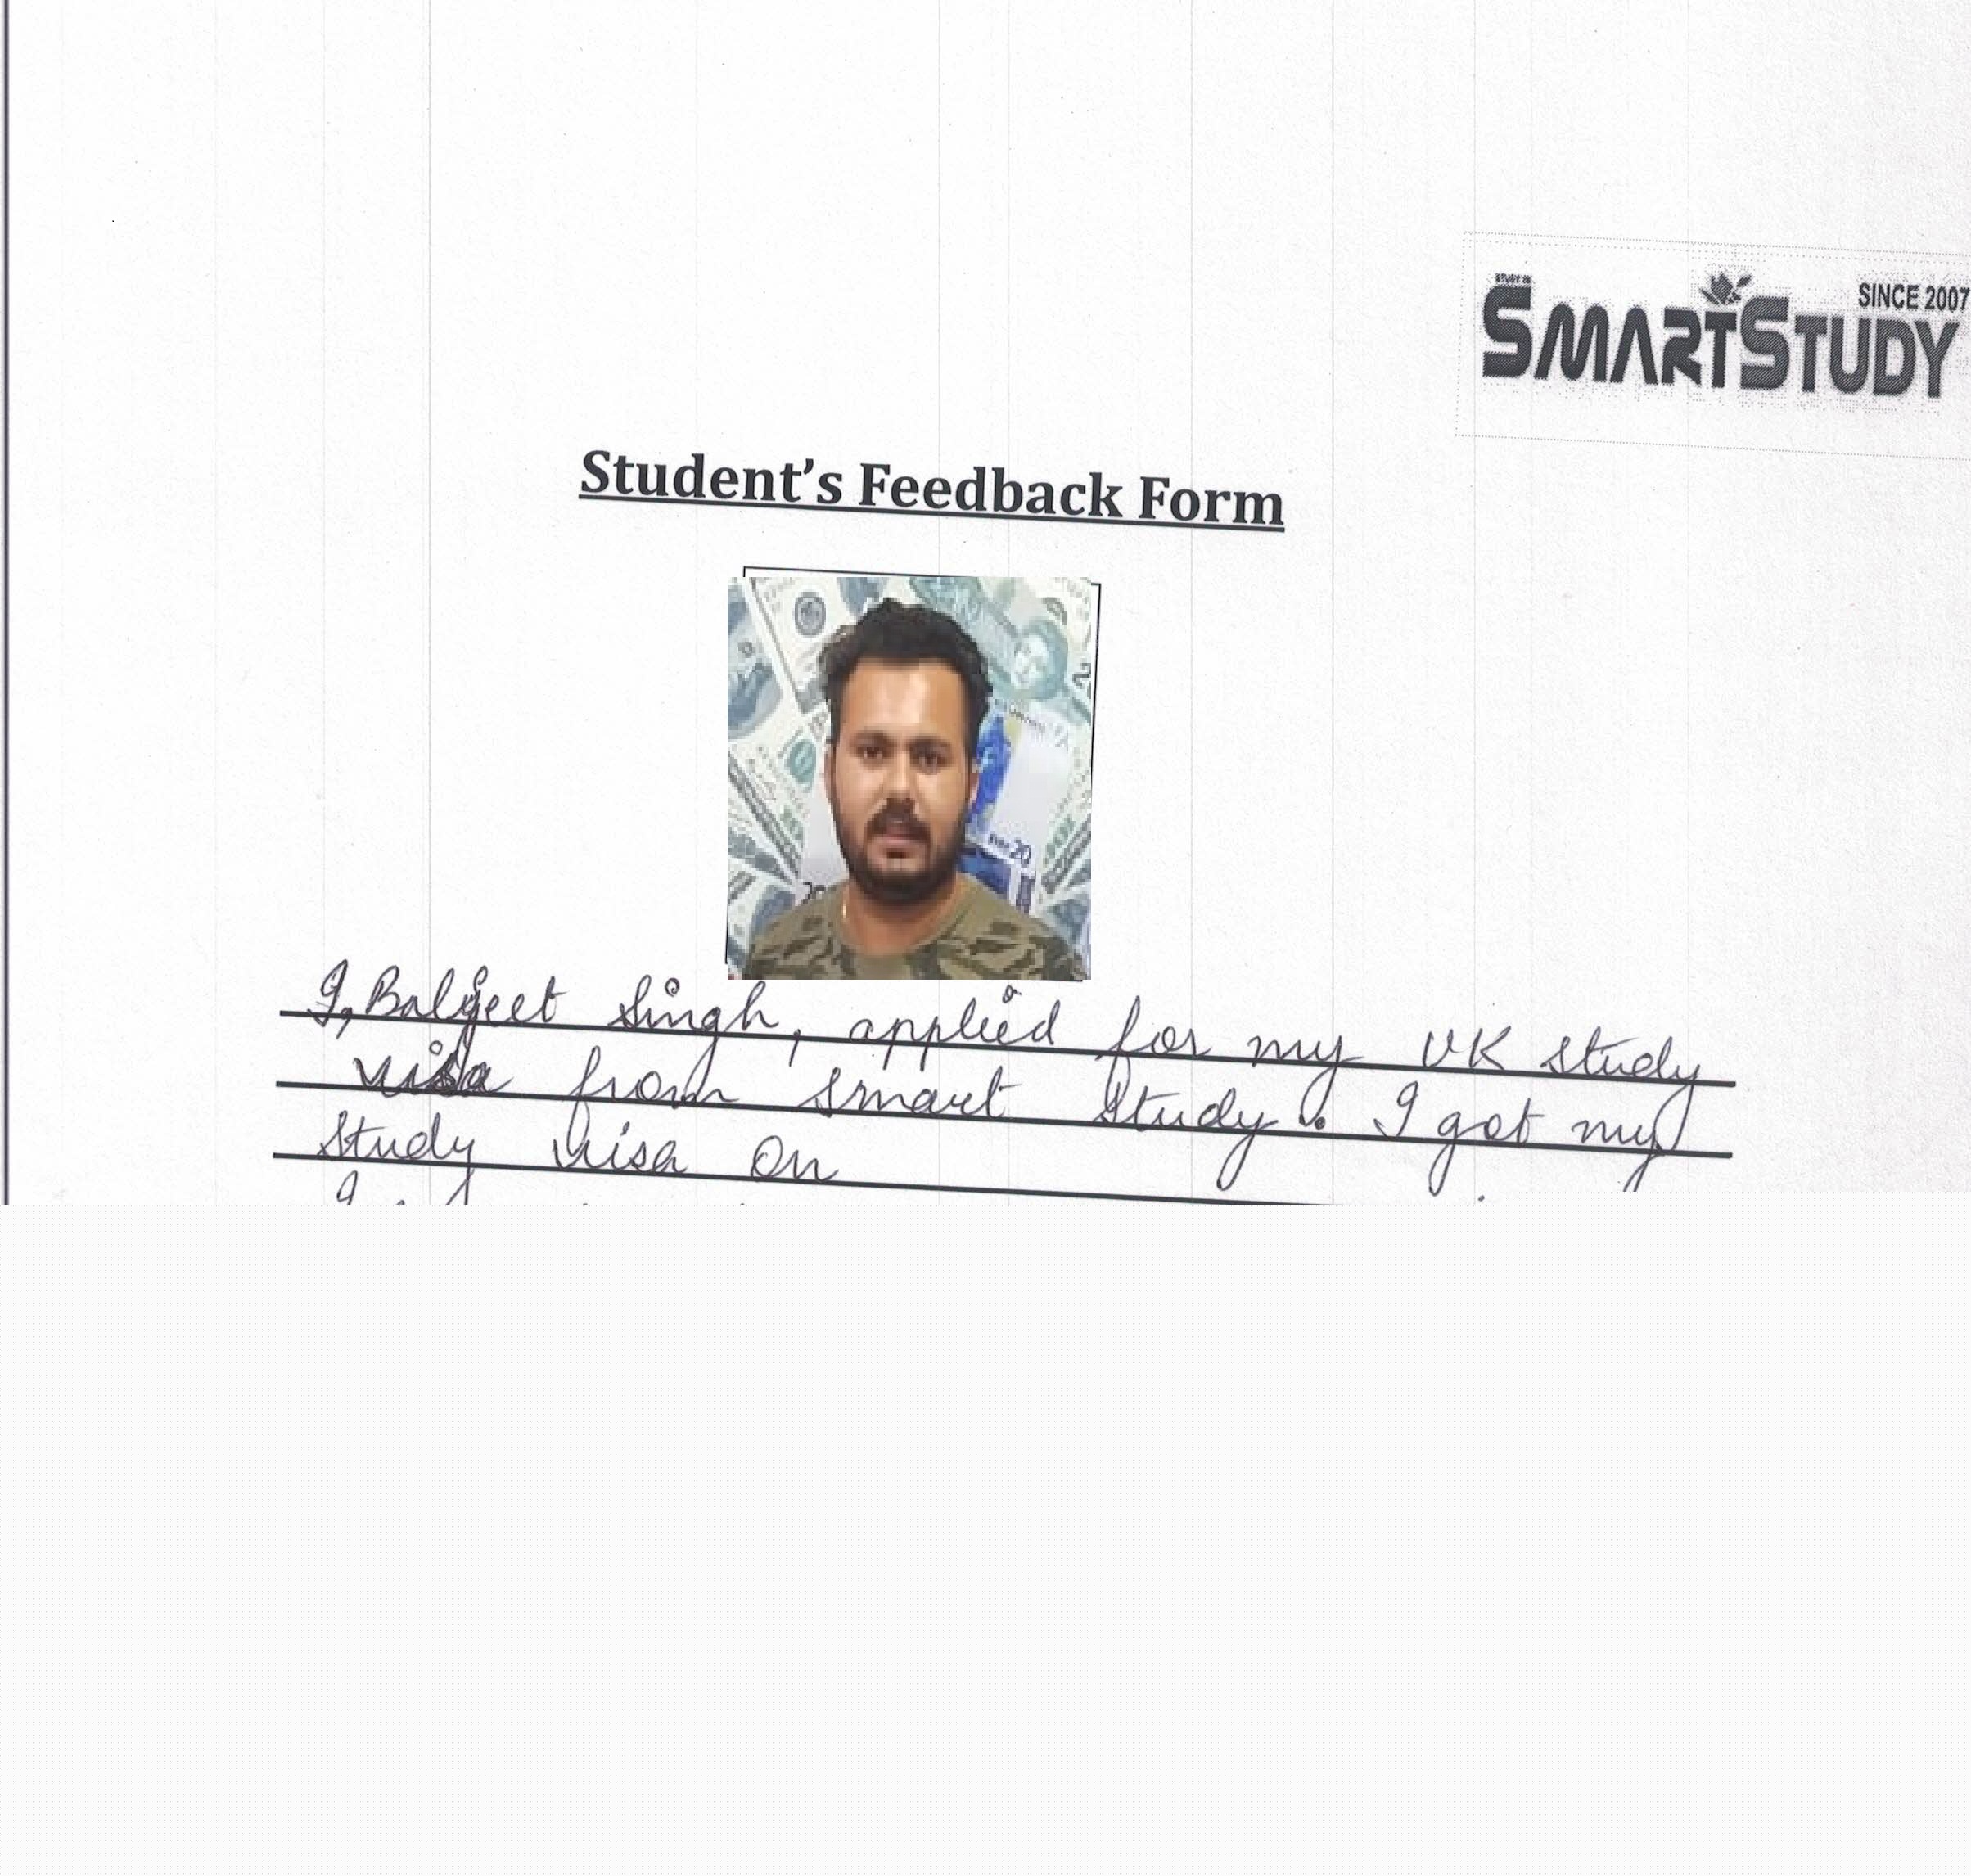 SINCE 2007
SMARTSTUDY
Student's Feedback Form
20
I, Baljeet Singh, applied for my UK study
visa from Smart Study. I got my
study visa on